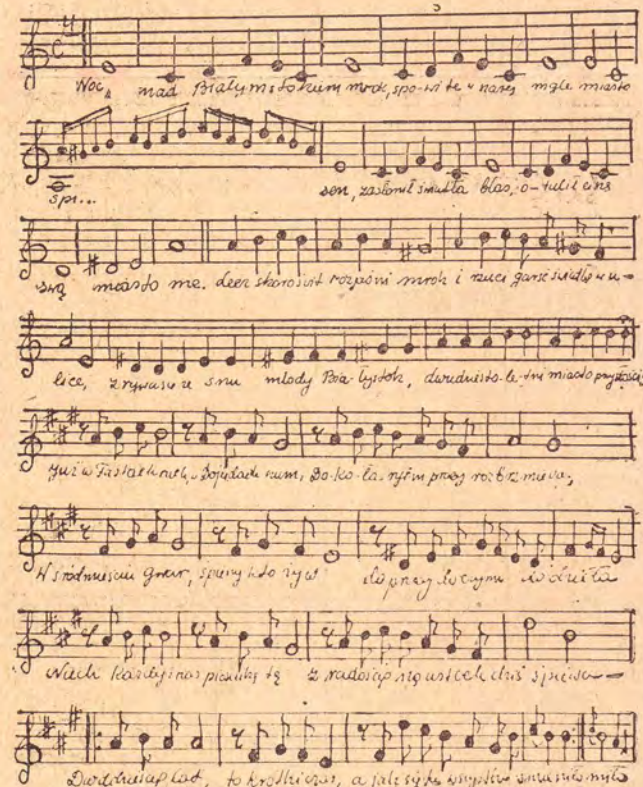 Noc, nad Białymstokiem mrok, spo-wite w naszej mgle miasto
śpi... sen, zasłonił światła blask, o-tulił cień
swą miasto me. Lecz skoro świt rozjaśni mrok i rzuci garść świateł w u-
lice, zrywa się ze snu młody Bia-łystok, dwudziesto-le-tni miasto przyszłości
Już w Fastach ruch, w Dojlidach szum, Do-ko-ła rytm pracy rozbrzmiewa,
W śródmieściu gwar, śpieszy kto żyw do pracy do czynu do dzieła
Niech każdy z nas piosenkę tę z radością na ustach dziś śpiewa-
Dwadzieścia lat, to krótki czas, a jak się tu wszystko zmieniło